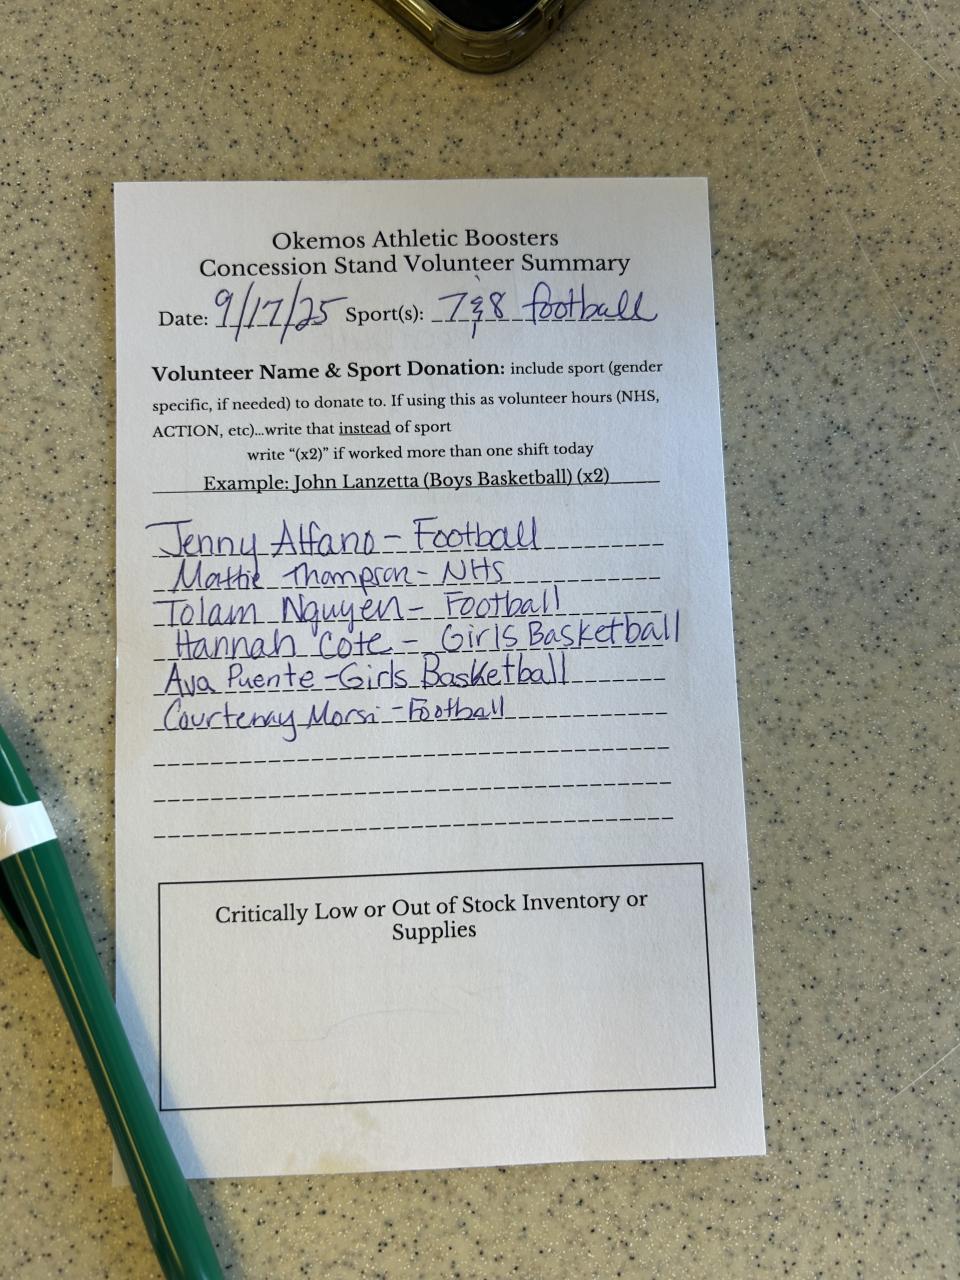 Okemos Athletic Boosters
Concession Stand Volunteer Summary
Date: 9/17/25 Sport(s): 7&8 football
Volunteer Name & Sport Donation: include sport (gender
specific, if needed) to donate to. If using this as volunteer hours (NHS,
ACTION, etc)...write that instead of sport
write "(x2)" if worked more than one shift today
Example: John Lanzetta (Boys Basketball) (x2)
Jenny Alfano - Football
Mattie Thompson - NHS
Tolam Nguyen - Football
Hannah Cote - Girls Basketball
Ava Puente - Girls Basketball
Courtenay Morsi - Football
Critically Low or Out of Stock Inventory or
Supplies